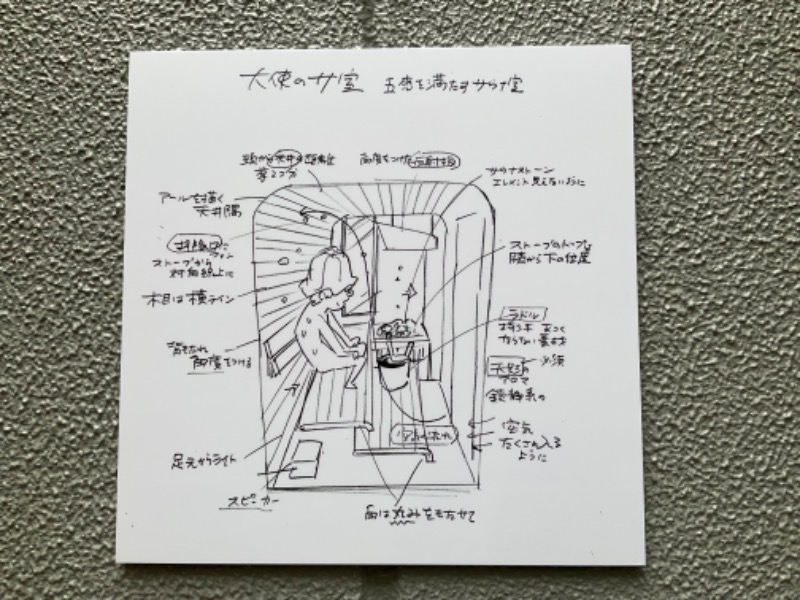 天使のサ室 五感を満たすサウナ室
頭から天井の距離
拳2つ分
角度をつけた反射板
サウナストーン
エレメント見えないように
アールを描く
天井隅
排気口は
ストーブから
対角線上に
木目は横ライン
ストーブのトップは
膝から下の位置
ラドル
持ち手 あつく
ならない素材
背もたれ
角度をつける
天然の 必須
アロマ
空気
たくさん入る
ように
足元からライト
スピーカー
角は丸みをもたせて